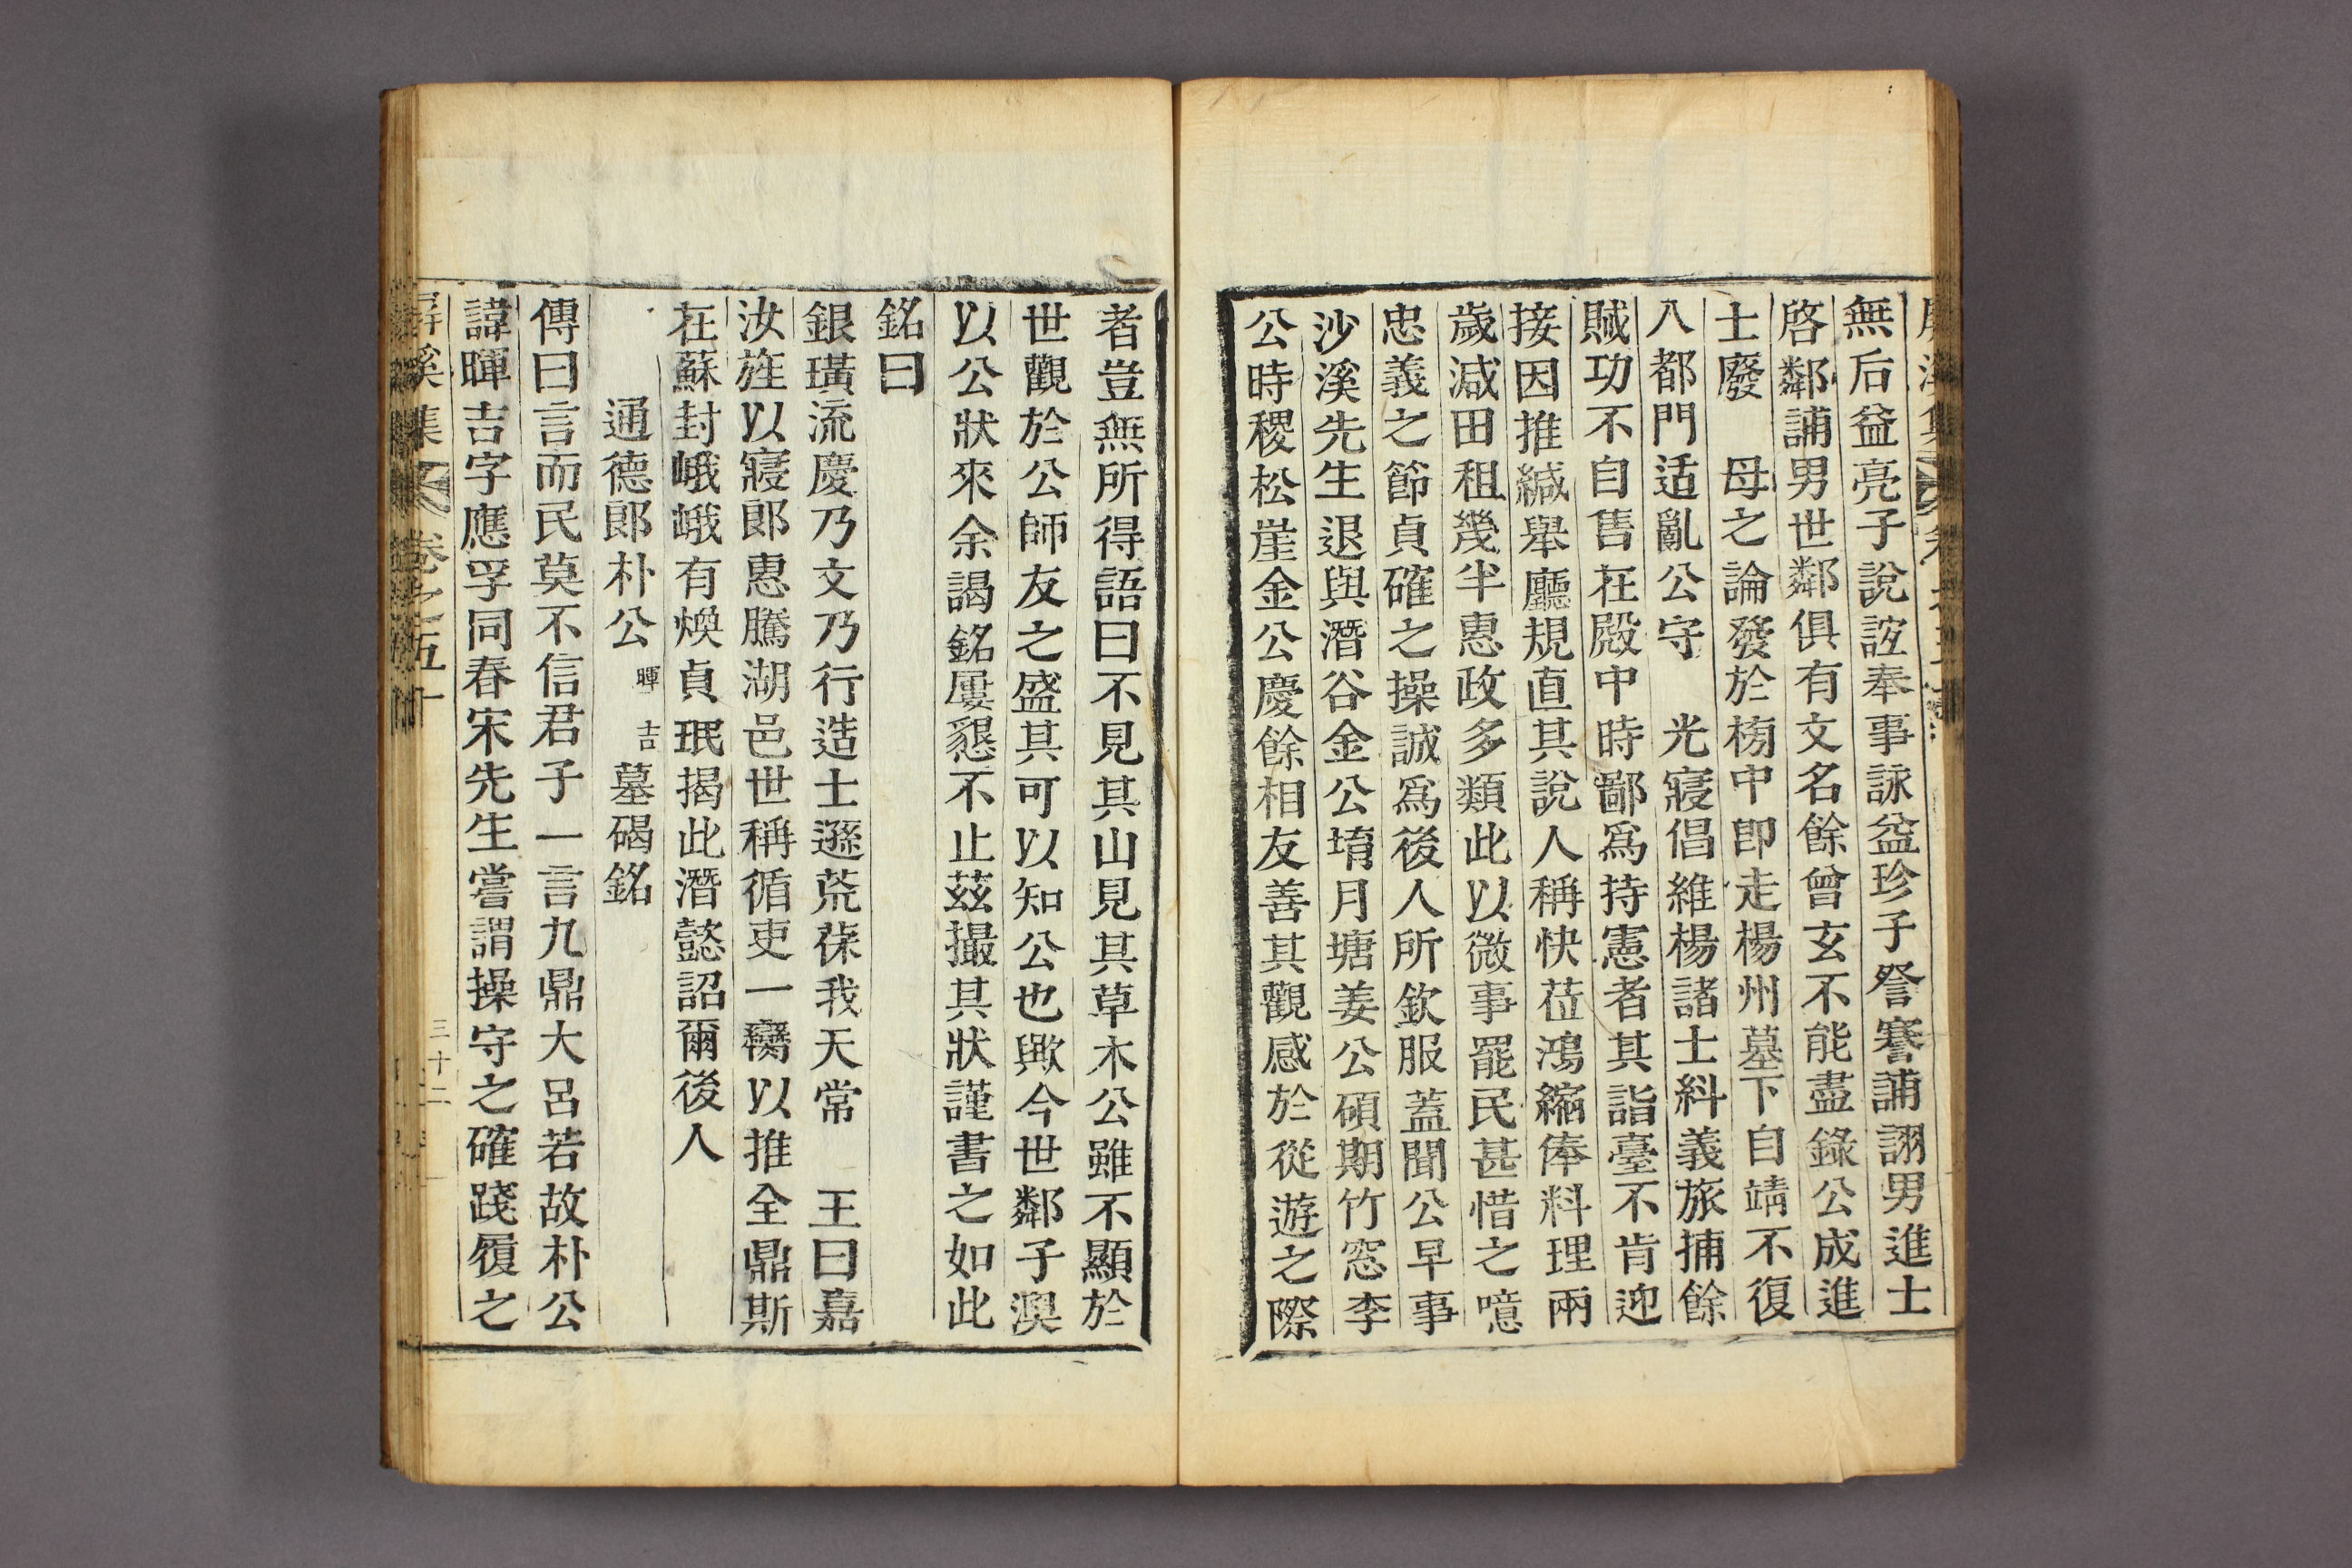 無后益亮子說誼奉事詠益珍子詧謇誧詡男進士
啓鄰誧男世鄰俱有文名餘曾玄不能盡錄公成進
士廢 母之論發於榜中卽走楊州墓下自靖不復
入都門适亂公守 光寢倡維楊諸士糾義旅捕餘
賊功不自售在殿中時鄙爲持憲者其詣臺不肯迎
接因推緘舉廳規直其說人稱快莅鴻縮俸料理兩
歲減田租幾半惠政多類此以微事罷民甚惜之噫
忠義之節貞確之操誠爲後人所欽服蓋聞公早事
沙溪先生退與潛谷金公堉月塘姜公碩期竹窓李
公時稷松崖金公慶餘相友善其觀感於從遊之際
者豈無所得語曰不見其山見其草木公雖不顯於
世觀於公師友之盛其可以知公也歟今世鄰子澳
以公狀來余謁銘屢懇不止茲撮其狀謹書之如此
銘曰
銀璜流慶乃文乃行造士遜荒葆我天常 王曰嘉
汝旌以寢郞惠騰湖邑世稱循吏一臠以推全鼎斯
在蘇封峨峨有煥貞珉揭此潛懿詔爾後人
通德郞朴公 暉吉 墓碣銘
傳曰言而民莫不信君子一言九鼎大呂若故朴公
諱暉吉字應孚同春宋先生嘗謂操守之確踐履之
屛溪集 卷之五十 三十二